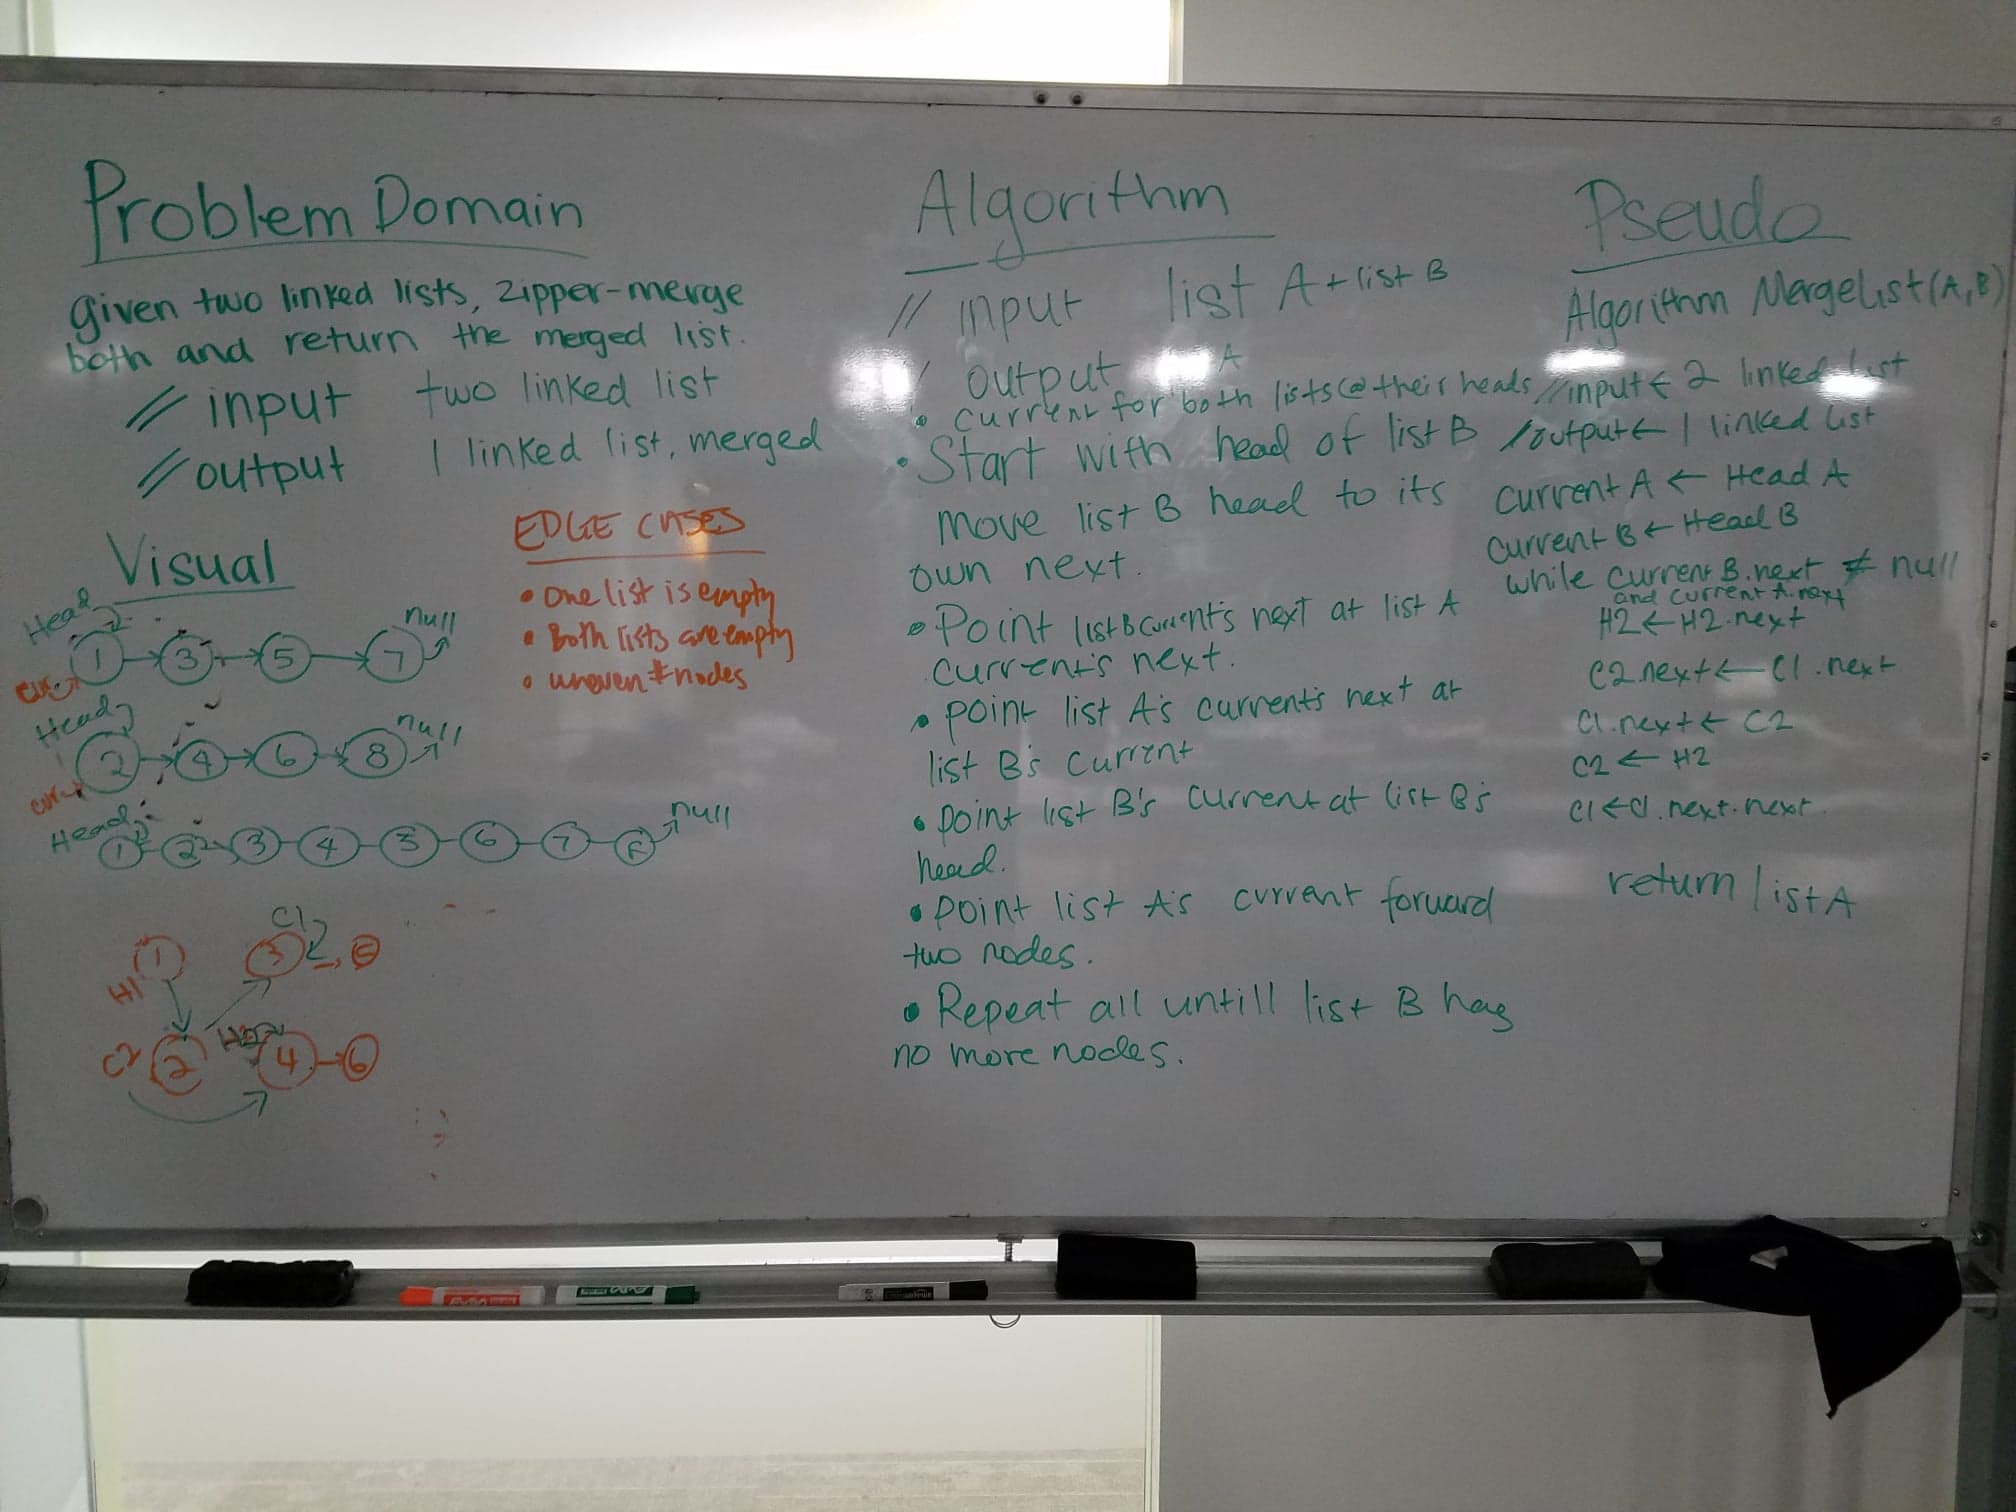 Problem Domain
given two linked lists, zipper-merge
both and return the merged list.
// input two linked list
// output 1 linked list, merged
Visual
Head
1 3 5 7 null
cur
Head
2 4 6 8 null
cur
Head
1 2 3 4 5 6 7 8 null
C1
1 3 5
H1
H2
C2 2 4 6
EDGE CASES
• One list is empty
• Both lists are empty
• uneven # nodes
Algorithm
// input list A + list B
// output A
• current for both lists @ their heads
• Start with head of list B
move list B head to its
own next.
• Point list B current's next at list A
current's next.
• point list A's current's next at
list B's current
• point list B's current at list B's
head.
• point list A's current forward
two nodes.
• Repeat all untill list B has
no more nodes.
Pseudo
Algorithm MergeList(A,B)
// input ← 2 linked list
// output ← 1 linked list
current A ← Head A
current B ← Head B
while current B.next ≠ null
and current A.next
H2 ← H2.next
C2.next ← C1.next
C1.next ← C2
C2 ← H2
C1 ← C1.next.next
return listA